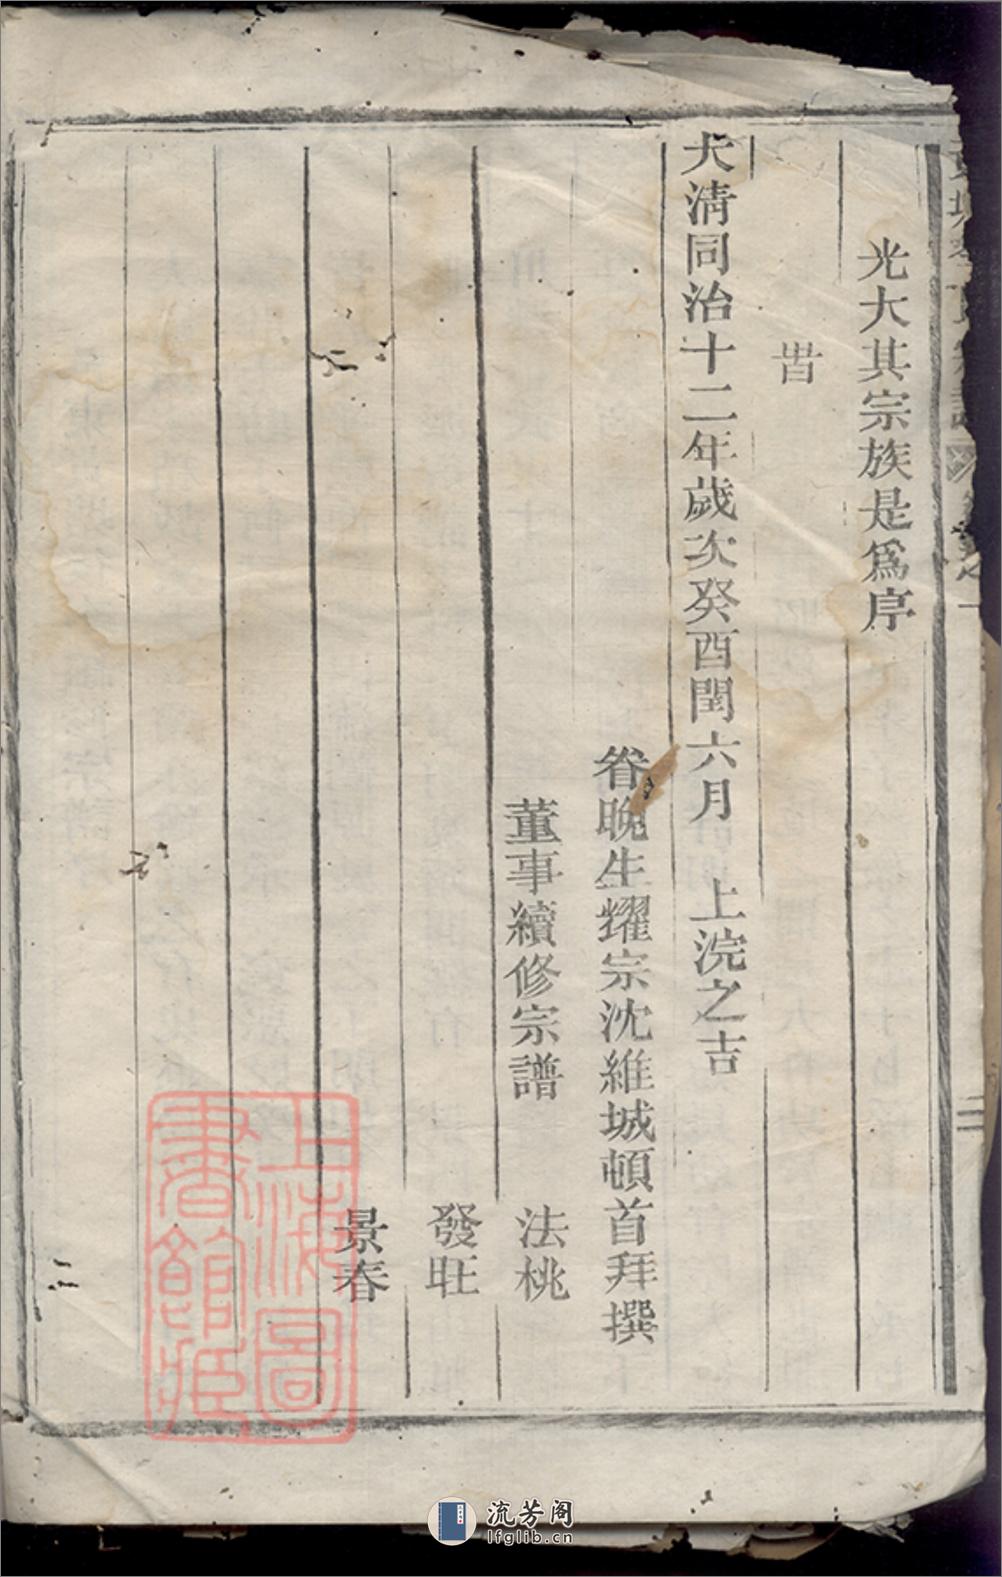 光大其宗族是為序
旹
大清同治十二年歲次癸酉閏六月 上浣之吉
眷晚生耀宗沈維城頓首拜撰
董事續修宗譜 法桃
發旺
景春
上海圖書館藏
流芳阁
lfglib.cn